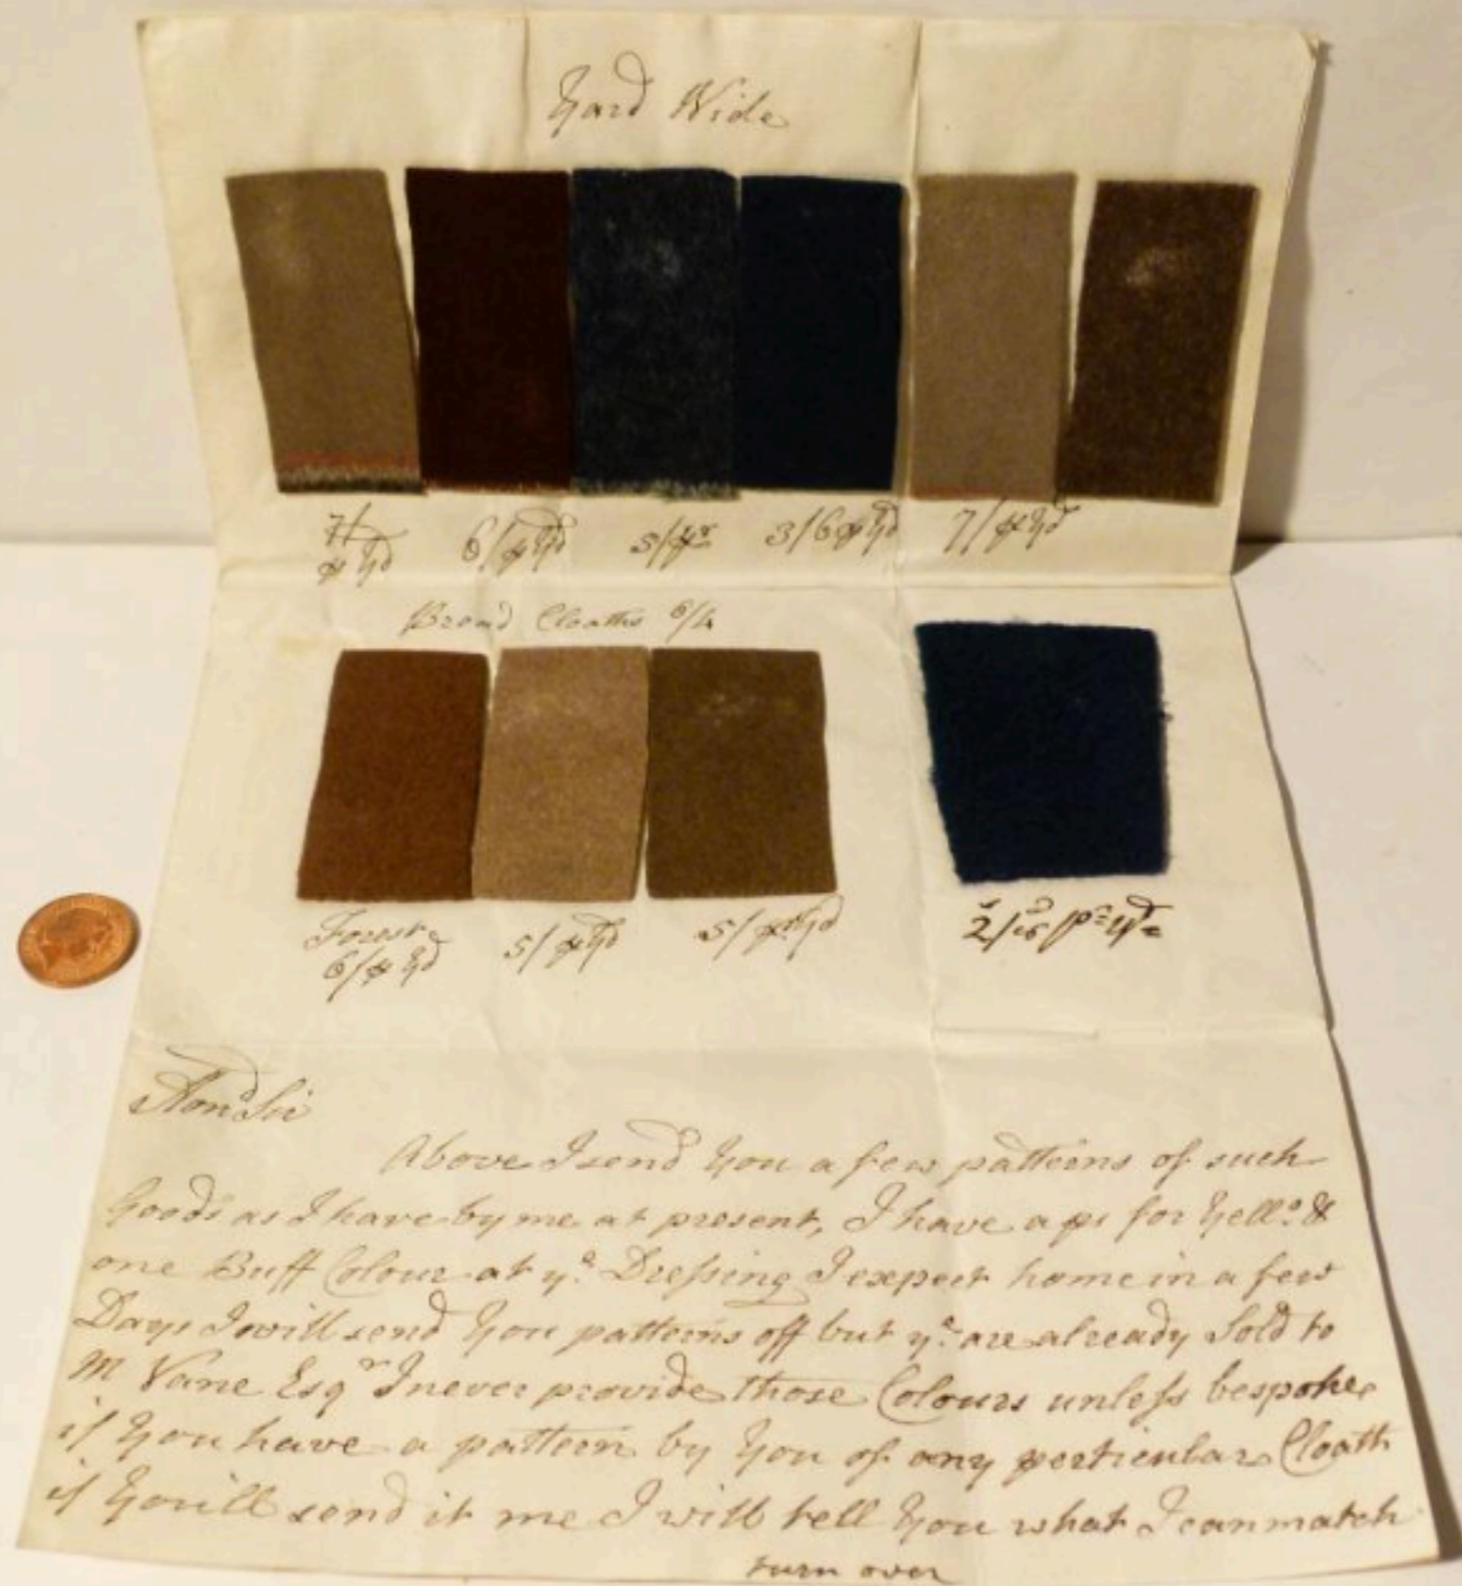 Yard Wide
7/ ⅌ Yd 6/ ⅌ Yd 5/ ⅌ Yd 3/6 ⅌ Yd 7/ ⅌ Yd
Broad Cloaths 6/4
Forest
6/ ⅌ Yd 5/ ⅌ Yd 5/ ⅌ Yd
Hond Sir
Above I send You a few patterns of such
Goods as I have by me at present, I have a ps for Yello &
one Buff Colour at ye Dressing I expect home in a few
Days I will send You patterns off but ye are already Sold to
M Vane Esqr I never provide those Colours unless bespoke
if You have a pattern by You of any perticular Cloath
if Youill send it me I will tell You what I can match
turn over